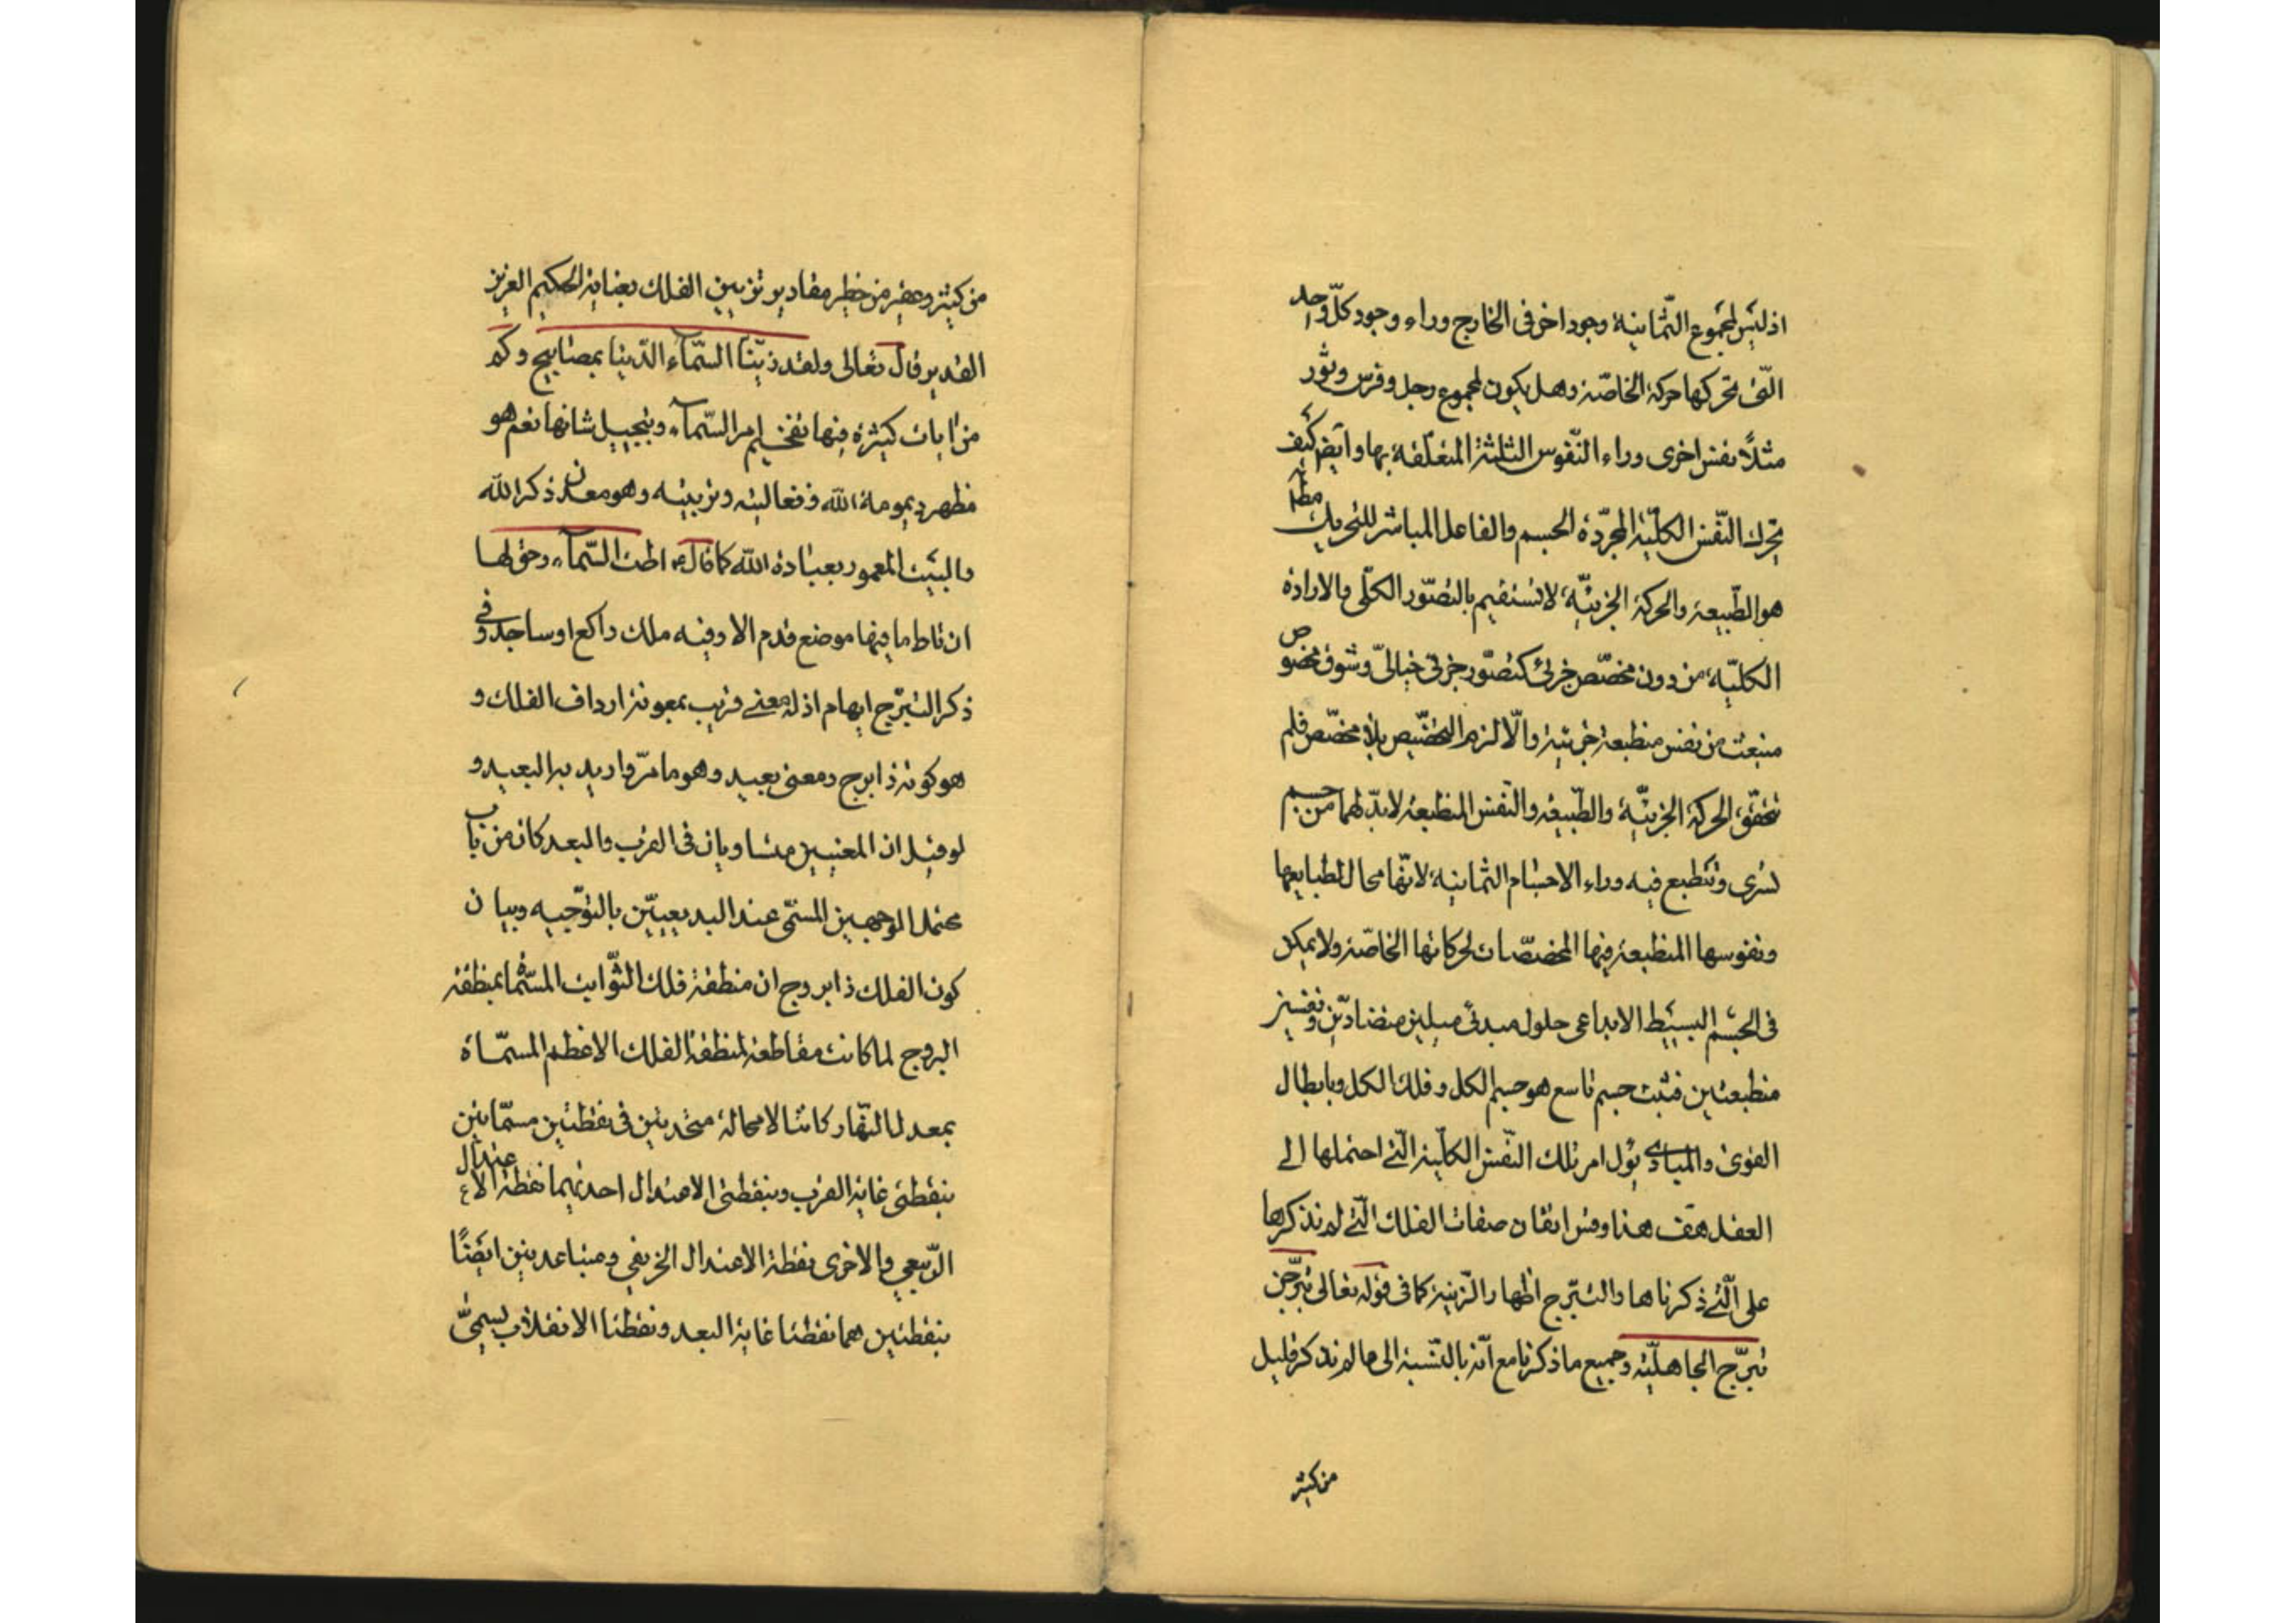 اذ ليس لمجموع الثمانية وجود اخر فى الخارج وراء وجود كلّ واحد
التى تحركها حركة الخاصّة وهل يكون لمجموع رجل وفرس وثور
مثلاً نفس اخرى وراء النّفوس الثلثة المتعلّقة بها وايض كيف
تحرك النّفس الكلّية المجرّدة الجسم والفاعل المباشر للتحريك
هو الطّبيعة والحركة الجزئيّة لا تستقيم بالتصّور الكلّى والارادة
الكليّة من دون مخصّص جزئى كتصّور جزئى خيالىّ وشوق مخصوص
منبعث من نفس منطبعة جزئية والّا لزم التخصّيص بلا مخصّص فلم
تتحقّق الحركة الجزئيّة والطّبيعة والنّفس المنطبعة لابدّ لهما من جسم
تسرى وتنطبع فيه وراء الاجسام الثمانية لانّها محال لطبايعها
ونفوسها المنطبعة فيها المخصّصات لحركاتها الخاصّة ولا يمكن
فى الجسم البسيط الابداعى حلول مبدئى ميلين متضادّين ونفسين
منطبعتين فثبت جسم تاسع هو جسم الكل وفلك الكل وبابطال
القوى والمبادى يؤل امر تلك النّفس الكلّية الّتى احتملها الى
العقل هف هذا وقس اتقان صفات الفلك الّتى لم نذكرها
على الّتى ذكرناها والتبّرج اظهار الزّينة كما فى قوله تعالى تبرّجن
تبرّج الجاهليّة وجميع ما ذكرنا مع انّه بالنّسبة الى ما لم نذكر قليل
من كثير
من كثير وحقير من خطير مقادير تزيين الفلك بعناية الحكيم العزيز
القدير قال تعالى ولقد زيّنا السّمآء الدّنيا بمصابيح وكم
من ايات كثيرة فيها تفخيم امر السّمآء وتبجيل شانها نعم هو
مظهر ديمومة الله وفعاليته وتزيينه وهو معدن ذكر الله
والبيت المعمور بعبادة الله كما قال اطت السّمآء وحق لها
ان تاط ما فيها موضع قدم الا وفيه ملك راكع او ساجد وفى
ذكر التبّرج ايهام اذ له معنى قريب بمعونة ارداف الفلك و
هو كونه ذا برج ومعنى بعيد وهو ما مرّ واريد به البعيد و
لو قيل ان المعنيين متساويان فى القرب والبعد كان من باب
محتمل الوجهين المسمّى عند البديعييّن بالتوّجيه وبيان
كون الفلك ذا بروج ان منطقة فلك الثّوابت المسّماة بمنطقة
البروج لما كانت مقاطعة لمنطقة الفلك الاعظم المسمّاة
بمعدل النّهار كانتا لا محالة متحدتين فى نقطتين مسمّاتين
بنقطتى غاية القرب وبنقطتى الاعتدال احديهما نقطة الاعتدال
الرّبيعى والاخرى نقطة الاعتدال الخريفى ومتباعدتين ايضًا
بنقطتين هما نقطتا غاية البعد ونقطتا الانقلاب يسمّى